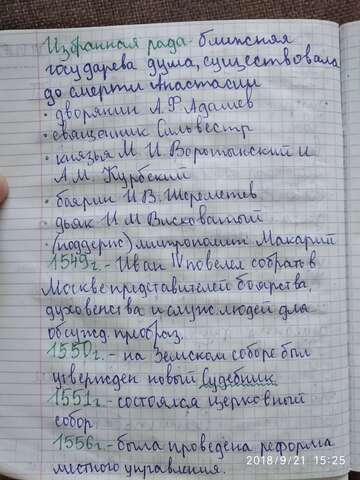 Избранная рада - ближняя
государева дума, существовала
до смерти Анастасии
· дворянин А.Ф Адашев
· священник Сильвестр
· князья М. И. Воротынский и
А.М. Курбский
· боярин И.В. Шереметев
· дьяк И.М Висковатый
· (поддерж) митрополит Макарий
1549 г. - Иван IV повелел собрать в
Москве представителей боярства,
духовенства и служ. людей для
обсужд. преобраз.
1550 г. - на Земском соборе был
утвержден новый Судебник
1551 г. - состоялся церковный
собор
1556 г. - была проведена реформа
местного управления.
2018/9/21 15:25